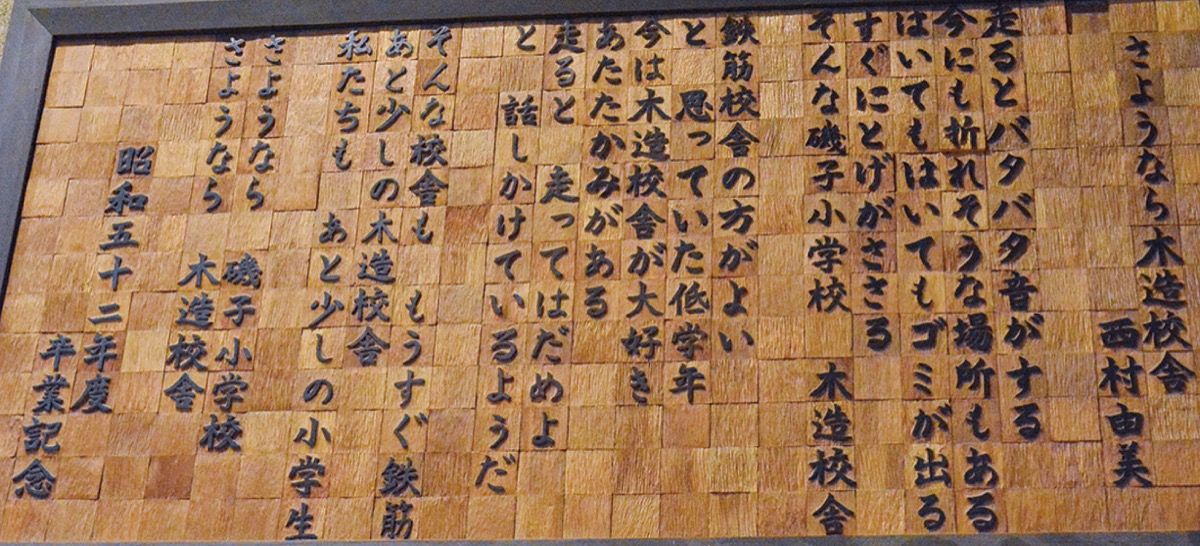 さようなら木造校舎
西村由美
走るとバタバタ音がする
今にも折れそうな場所もある
はいてもはいてもゴミが出る
すぐにとげがささる
そんな磯子小学校　木造校舎
鉄筋校舎の方がよい
と　思っていた低学年
今は木造校舎が大好き
あたたかみがある
走ると　走ってはだめよ
と　話しかけているようだ
そんな校舎も　もうすぐ鉄筋
あと少しの木造校舎
私たちも　あと少しの小学生
さようなら　磯子小学校
さようなら　木造校舎
昭和五十二年度
卒業記念